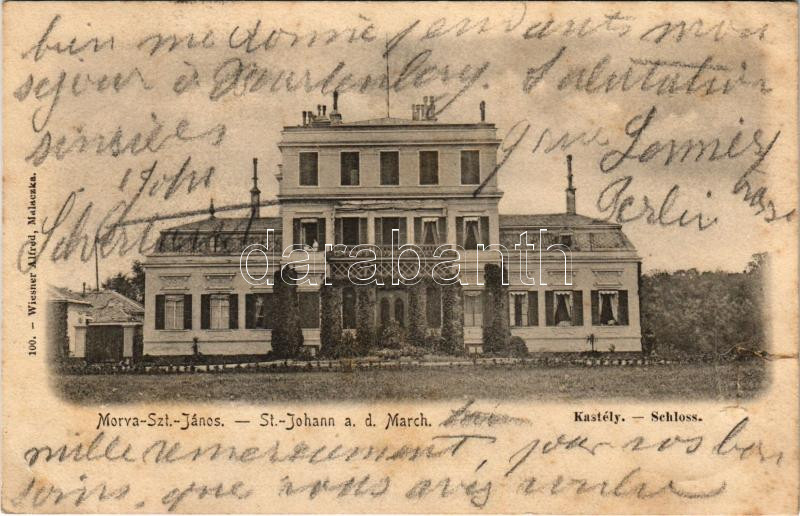 bien me donné pendants mon
séjour à
Salutation
sincères
9 rue
John
Berlin
100. – Wiesner Alfréd, Malaczka.
darabanth
Morva-Szt.-János. — St.-Johann a. d. March.
Kastély. — Schloss.
mille remerciement, pour vos bon
soins, que vous avés voulu